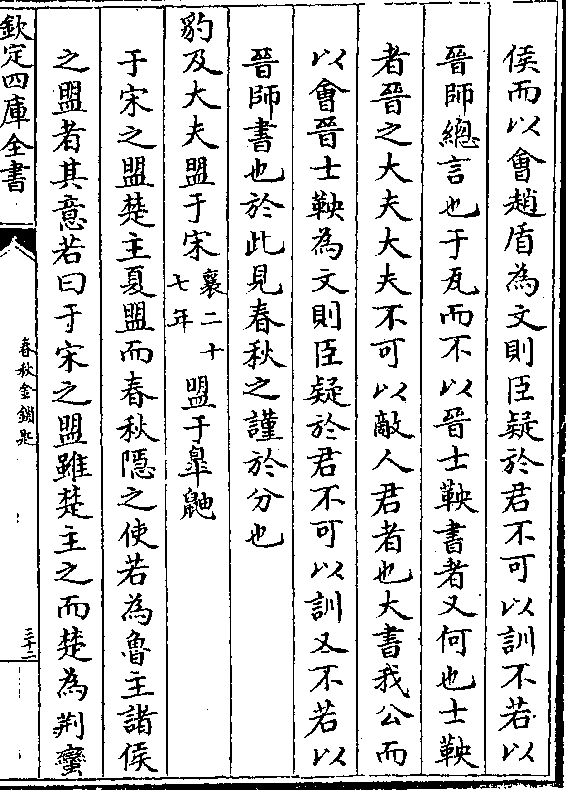 侯而以會趙盾為文則臣疑於君不可以訓不若以
晉師總言也于瓦而不以晉士鞅書者又何也士鞅
者晉之大夫大夫不可以敵人君者也大書我公而
以會晉士鞅為文則臣疑於君不可以訓又不若以
晉師書也於此見春秋之謹於分也
豹及大夫盟于宋襄二十七年盟于臯鼬
于宋之盟楚主夏盟而春秋隱之使若為魯主諸侯
之盟者其意若曰于宋之盟雖楚主之而楚為荆蠻
欽定四庫全書
春秋金鎖匙
三十二